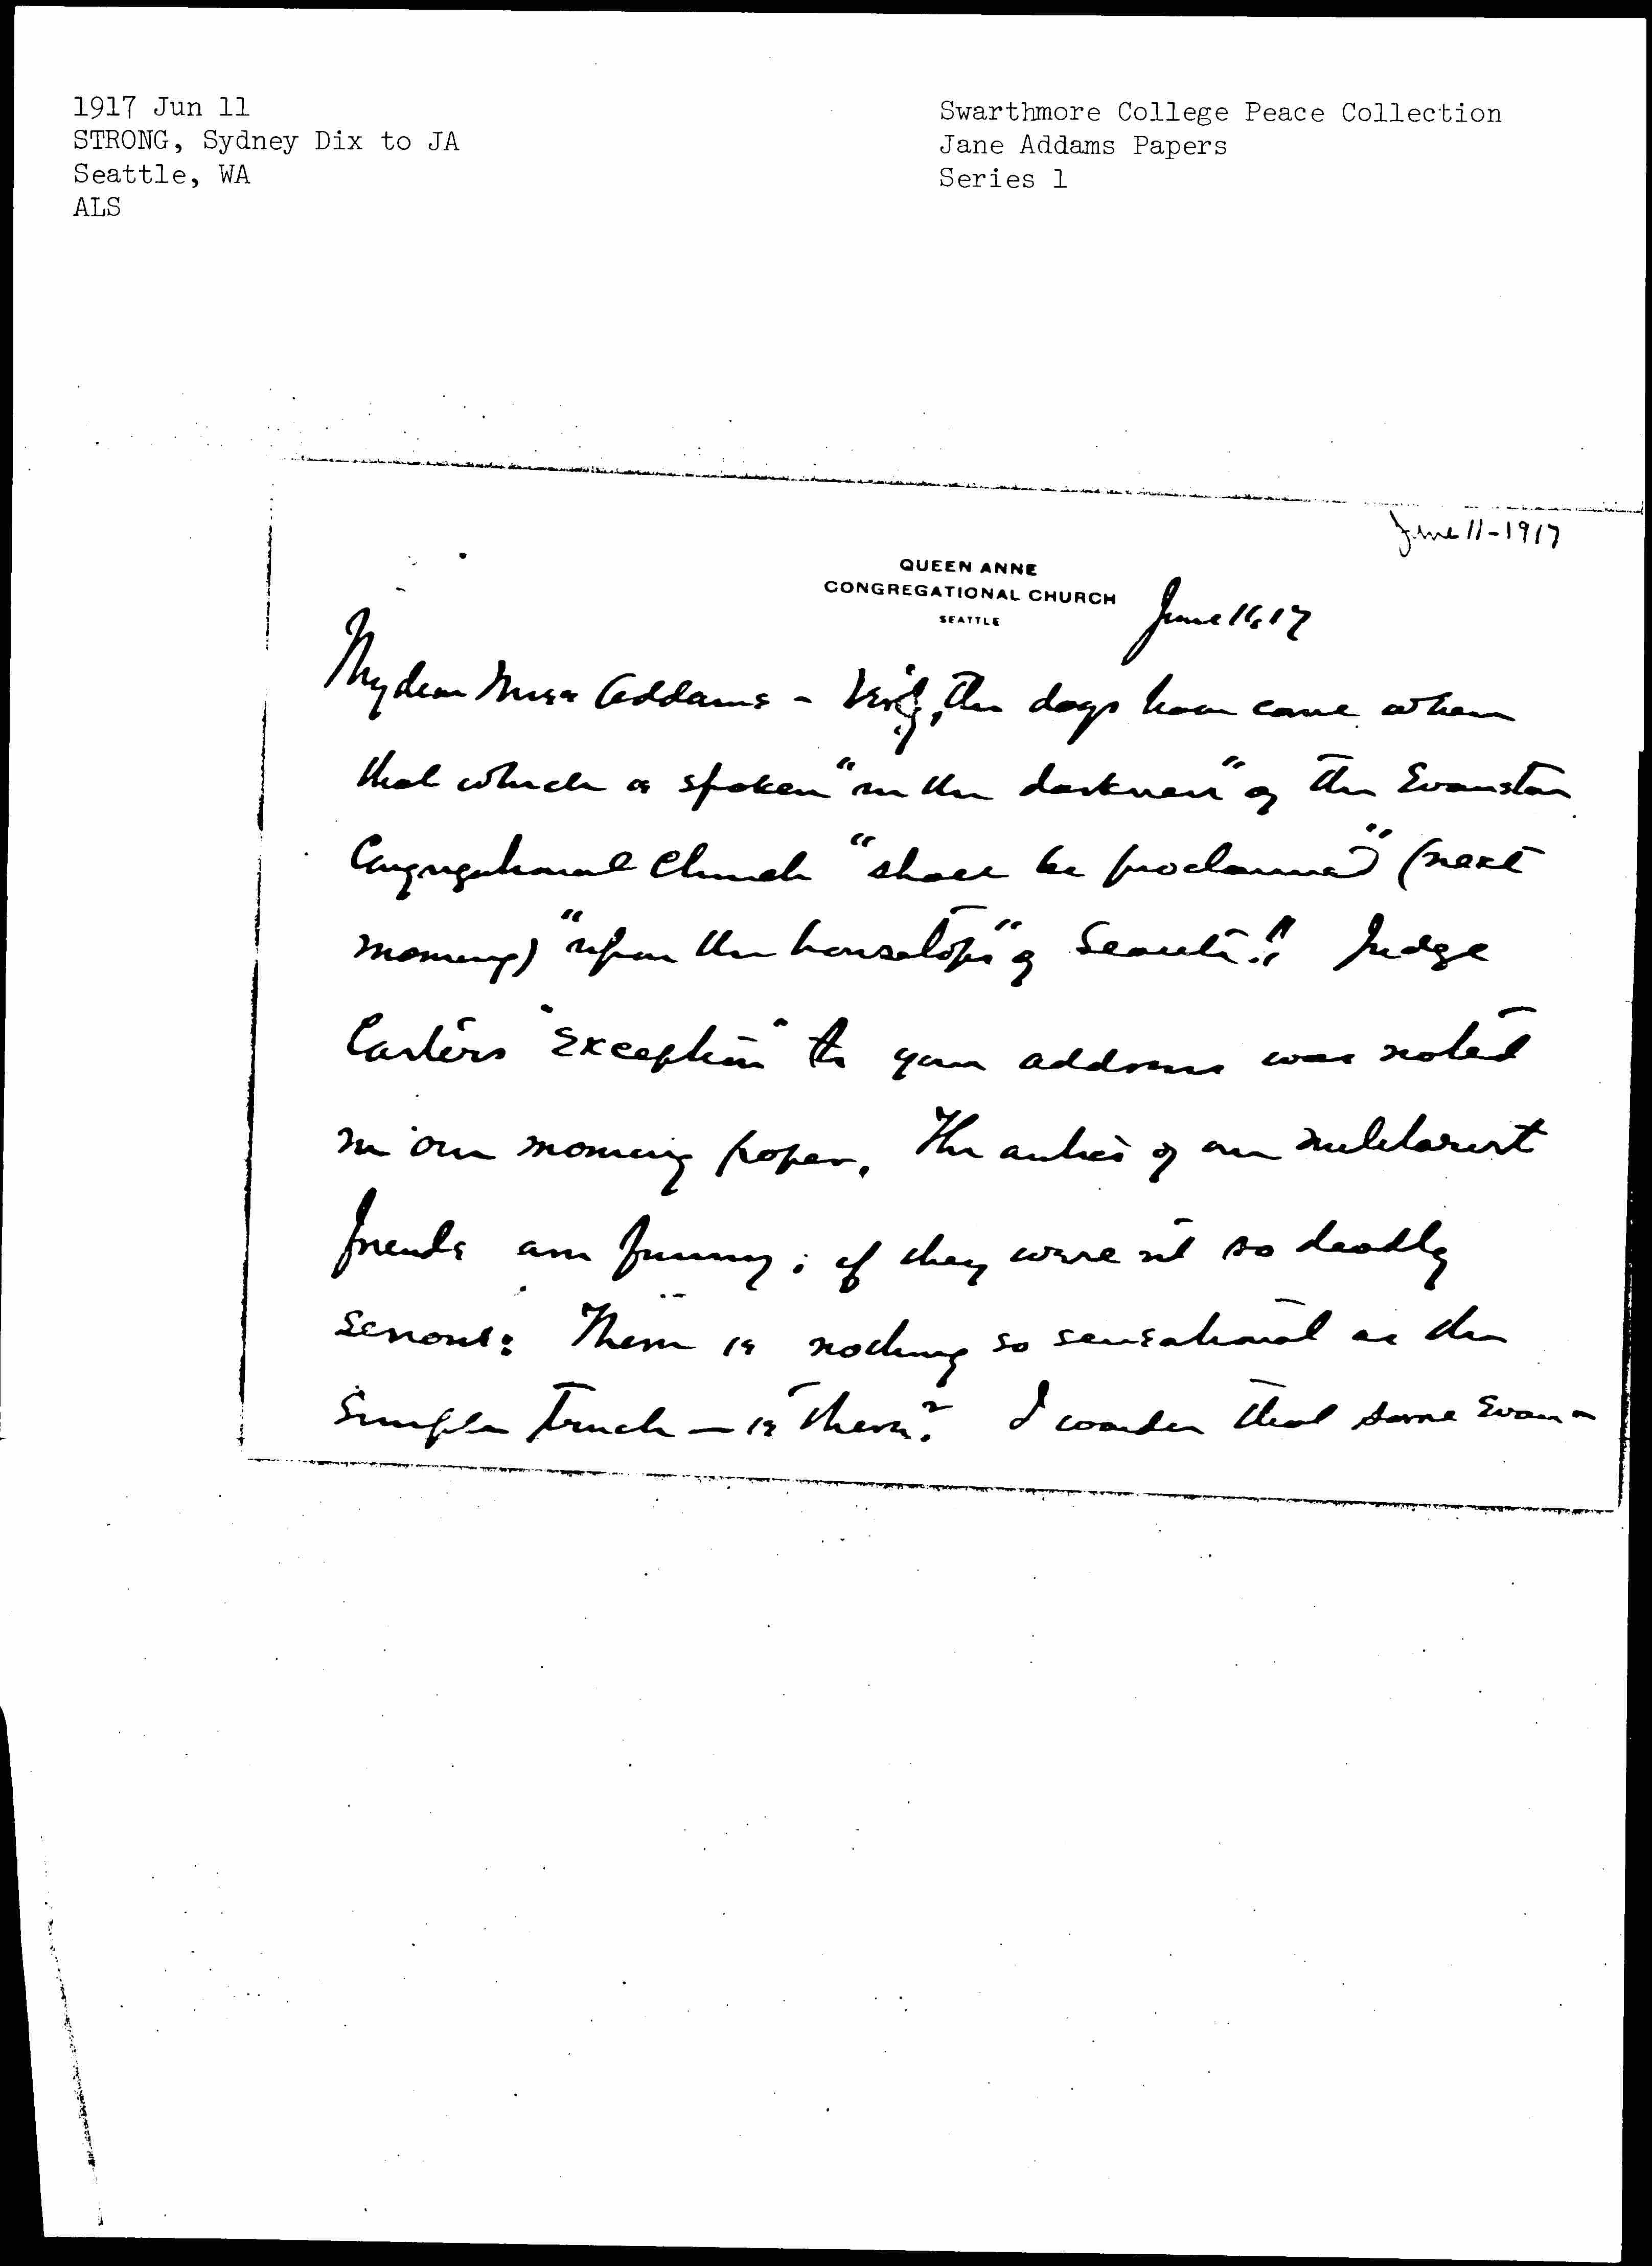 1917 Jun 11
STRONG, Sydney Dix to JA
Seattle, WA
ALS
Swarthmore College Peace Collection
Jane Addams Papers
Series 1
June 11-1917
QUEEN ANNE
CONGREGATIONAL CHURCH
SEATTLE
June 11, 17
My dear Miss Addams - Verily, the days have come when
that which is spoken "in the darkness" of the Evanston
Congregational Church "shall be proclaimed" (next
morning) "upon the housetops" of Seattle!! Judge
Carter's "exception" to your address was noted
in our morning paper. The antics of our militarist
friends are funny; if they were not so deadly
serious: There is nothing so sensational as the
simple truth — is there? I wonder that some Evan-